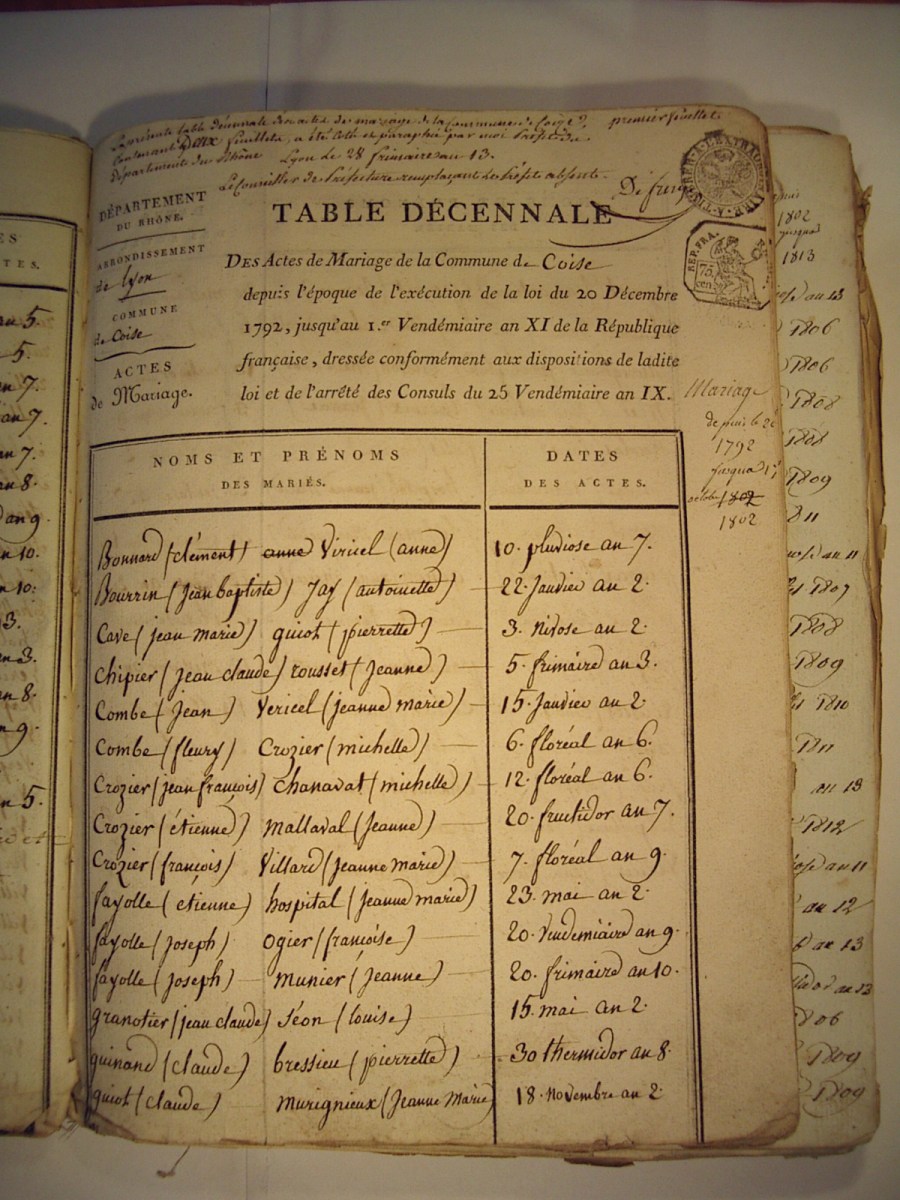 La présente table décennale des actes de mariage de la Commune de Coise premier feuillet
Contenant Deux feuillets, a été Coté et paraphé par moi Préfet du
département du Rhône Lyon le 28 frimaire an 13.
Le Conseiller de Préfecture remplaçant le Préfet absent.
DÉPARTEMENT
DU RHÔNE.
ARRONDISSEMENT
de Lyon
COMMUNE
de Coise
ACTES
de Mariage.
TABLE DÉCENNALE
REP. FRA.
75
cen
DES Actes de Mariage de la Commune de Coise
depuis l'époque de l'exécution de la loi du 20 Décembre
1792, jusqu'au 1.er Vendémiaire an XI de la République
française, dressée conformément aux dispositions de ladite
loi et de l'arrêté des Consuls du 25 Vendémiaire an IX.
Mariage
depuis le 20
1792
jusqua 1
octobre 1802
1802
NOMS ET PRÉNOMS
DES MARIÉS.
DATES
DES ACTES.
Bonnard (clément) anne Viricel (anne) 10. pludiose an 7.
Bourrin (jean baptiste) Jay (antoinette) 22. Janvier an 2.
Cave (jean marie) guiot (pierrette) 3. Nivose an 2.
Chipier (jean claude) rousset (Jeanne) 5. frimaire an 3.
Combe (Jean) Vericel (jeanne marie) 15. Janvier an 2.
Combe (fleury) Crozier (michelle) 6. floréal an 6.
Crozier (jean françois) Chanavat (michelle) 12. floréal an 6.
Crozier (étienne) Mallaval (Jeanne) 20. fructidor an 7.
Crozier (françois) Villard (jeanne marie) 7. floréal an 9.
fayolle (étienne) hospital (jeanne marie) 23. mai an 2.
fayolle (joseph) Ogier (françoise) 20. Vendemiaire an 9.
fayolle (joseph) Munier (jeanne) 20. frimaire an 10.
granotier (jean claude) Séon (louise) 15. mai an 2.
guinand (claude) bressieu (pierrette) 30 thermidor an 8.
guiot (claude) Murignieux (Jeanne Marie) 18. Novembre an 2
ES
TES.
an 5.
5.
an 7.
an 7.
an 7.
an 8.
an 9.
an 10.
an 10.
3.
an 3.
an 8.
an 9.
an 5.
1802
jusqua
1813
an 13
1806
1806
1808
1808
1809
1811
an 11
1807
1808
1809
1810
1811
an 13
1812
an 11
an 12
an 13
an 13
1806
1809
1809